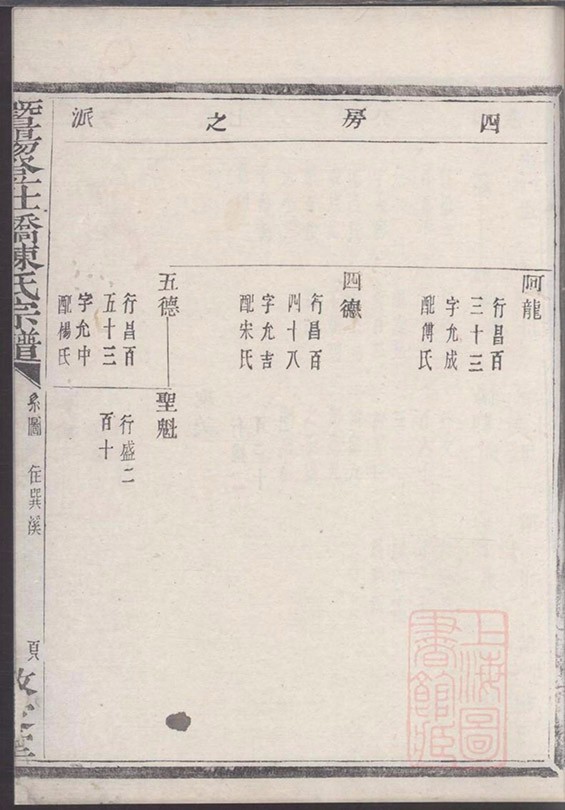 四房之派
阿龍
行昌百
三十三
字允成
配傅氏
四德
行昌百
四十八
字允吉
配宋氏
五德
行昌百
五十三
字允中
配楊氏
聖魁
行盛二
百十
暨陽登仕橋陳氏宗譜
系圖
住巽溪
頁
上海圖
書館藏